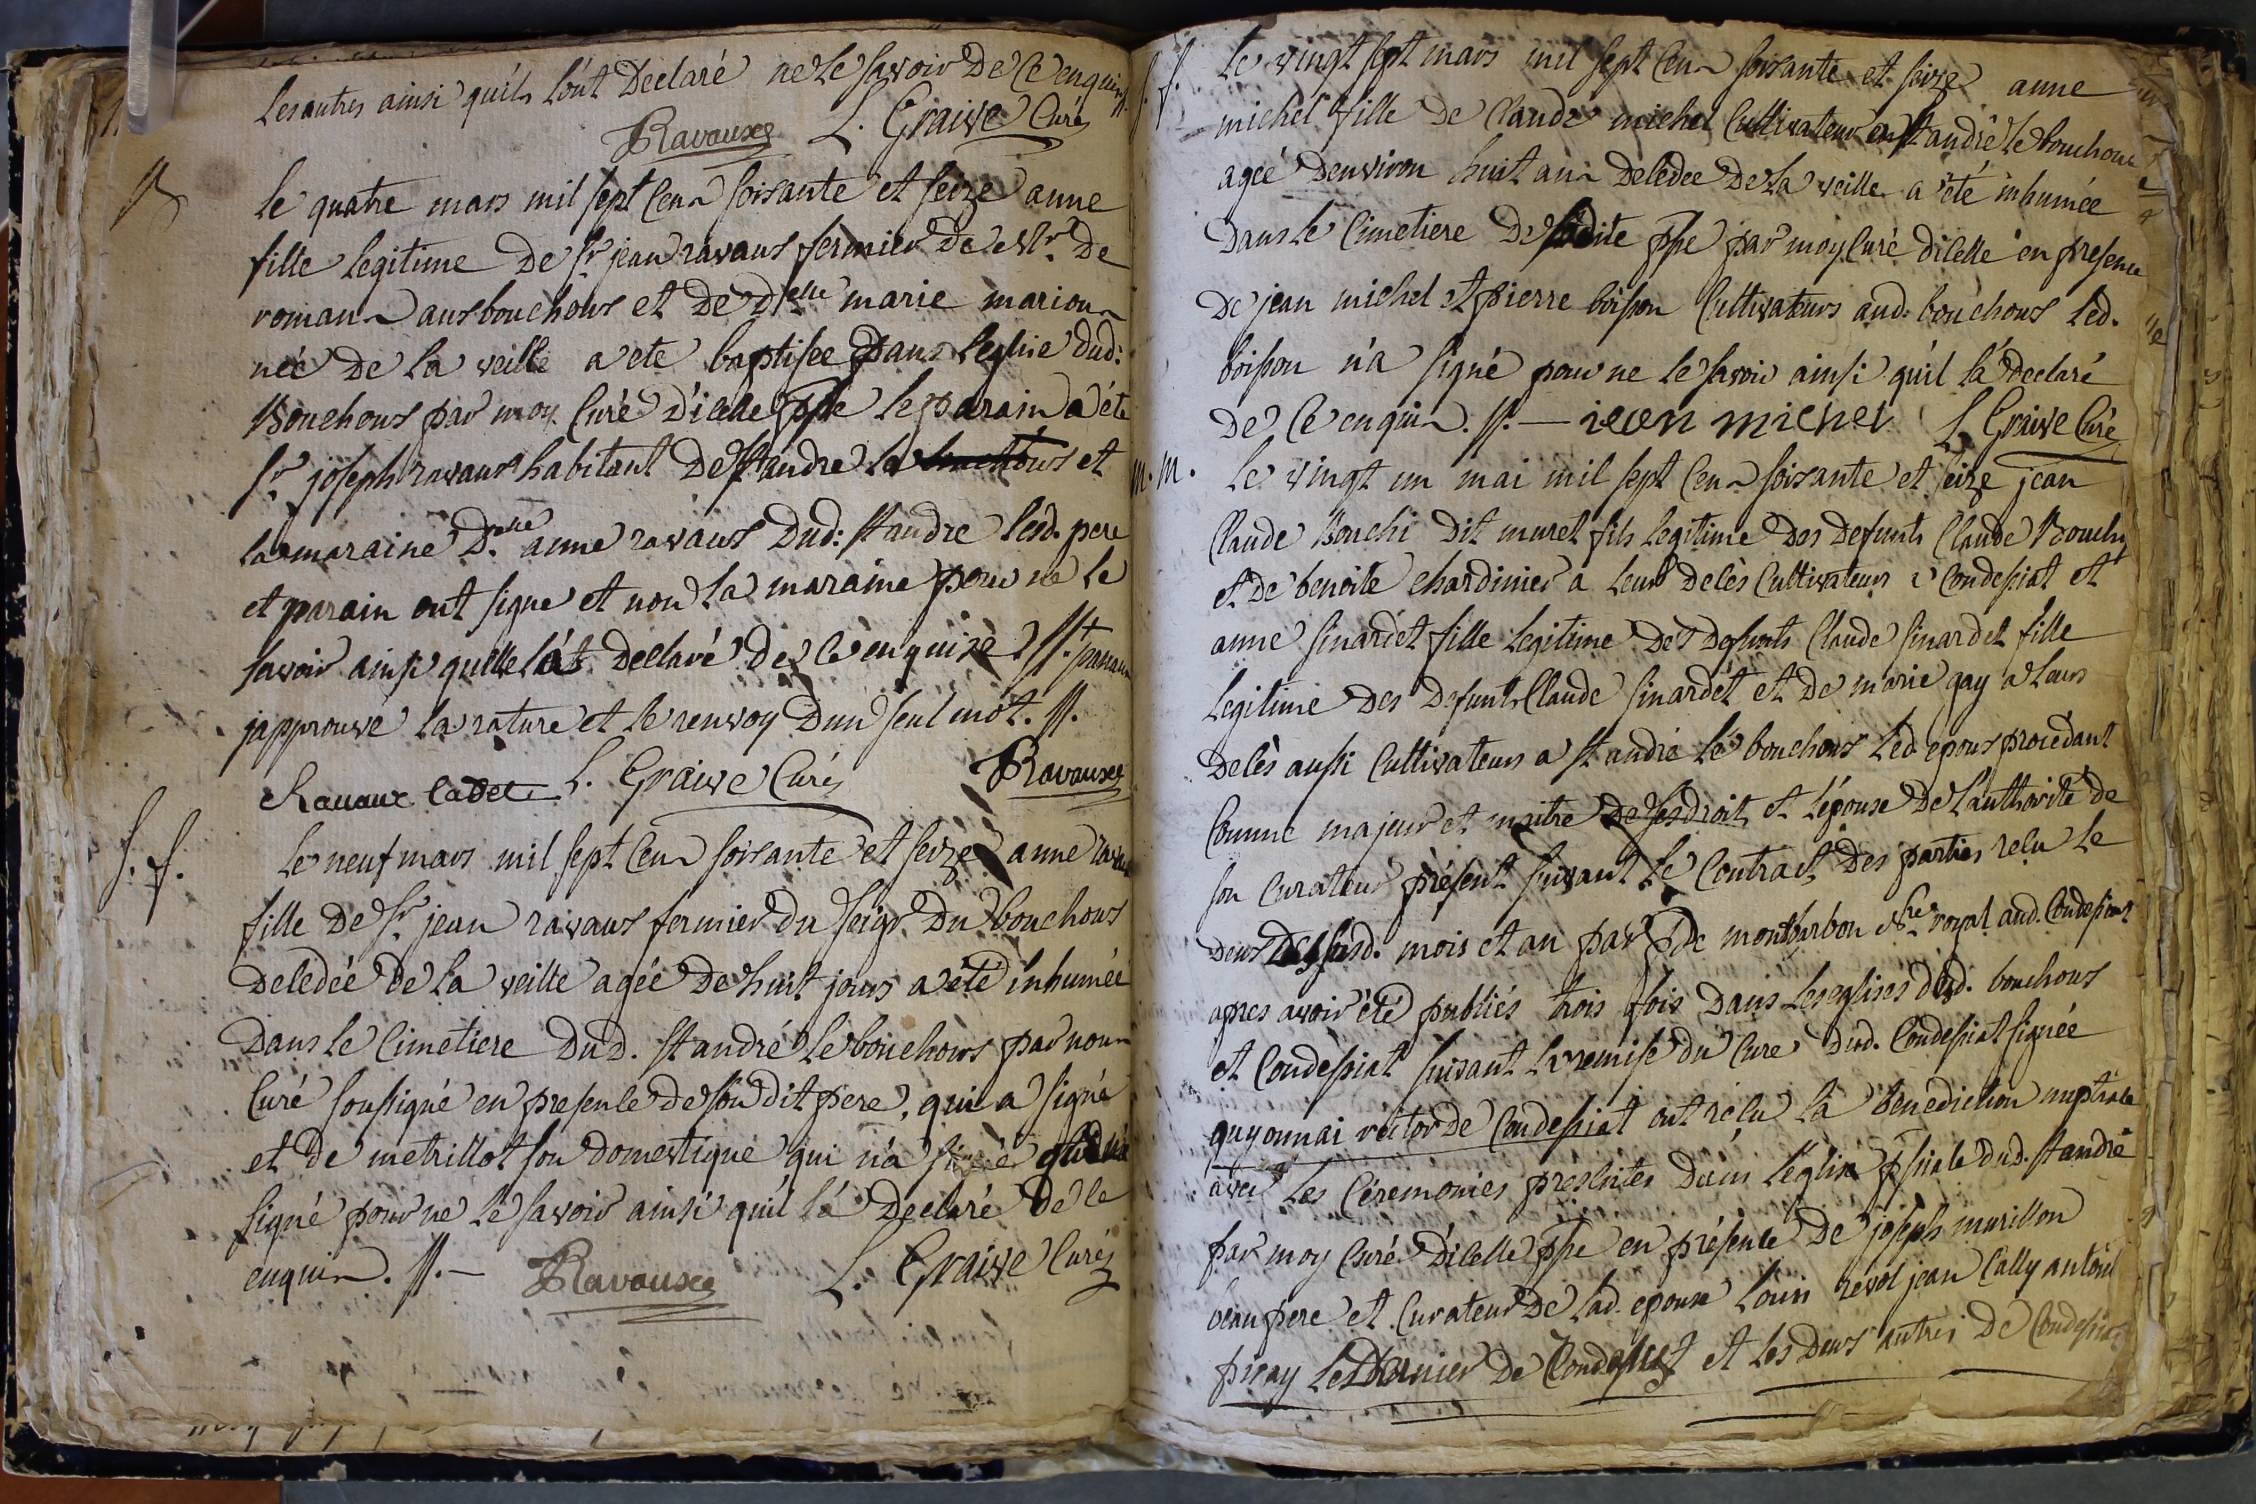 les autres ainsi quils lont Declaré ne le savoir De Ce enquis
Ravaux L. Graive Curé
B
le quatre mars mil sept Cens soisante et seize anne
fille legitime De Sr jean ravaus fermier De Mr. De
romans aus bouchous et De Delle marie marion
née De la veille a ete baptisée Dans leglise dud:
Bouchous par moy Curé Dicelle ppe le parain a été
Sr joseph ravaus habitant De St andre le bouchous et
la maraine D.elle anne ravaus Dud: St andre lesd. pere
et parain ont signe et non la maraine pour ne le
savoir ainsi quelle lat Declaré de Ce enquise //.
japprouve la rature et le renvoy Dun seul mot. //.
Ravaux Cadet L. Graive Curé Ravaux
S. f.
le neuf mars mil sept Cens soisante et seize anne
fille De Sr jean ravaus fermier du seigr. Du bouchous
Decedée De la veille agée De huit jours a été inhumée
Dans le Cimetiere Dud. St andré le bouchous par nous
Curé soussigné en presence De son dit pere, qui a signé
et de metrillot son Domestique qui n'a
signé pour ne le savoir ainsi quil la Declaré De Ce
enquis. //. — Ravaux L. Graive Curé
S. f.
le vingt sept mars mil sept Cens soisante et seize anne
michel fille De Claude michel Cultivateur en St andré le bouchous
agée Denviron huit ans Decedee De la veille a été inhumée
Dans le Cimetiere De ladite ppe par moy Curé dicelle en presence
De jean michel et pierre boisson Cultivateurs aud. bouchous led.
boisson n'a signé pour ne le savoir ainsi quil la declaré
De Ce enquis. //. — iean michel L. Graive Curé
m. m.
le vingt un mai mil sept Cens soisante et seize jean
Claude Bouchi Dit muret fils legitime Des Defunts Claude Bouchi
et De benoite chardinier a leurs decès Cultivateurs a Condessiat et
anne sinardet fille legitime Des Defunts Claude sinardet fille
legitime Des Defunts Claude sinardet et De marie gay a leurs
Decès aussi Cultivateurs a St andré le bouchous led. epous procedant
Comme majeur et maitre De ses droits et lépouse De lauthorité de
son Curateur présent suivant le Contract Des parties reçu le
Deus Des susd. mois et an par De montbarbon Nre royal aud. Condessiat
apres avoir été publiés trois fois Dans les eglises dud. bouchous
et Condessiat suivant la remise du Cure Dud. Condessiat signée
guyonnai rector de Condessiat ont reçu la benediction nuptiale
avec les Céremonies prescrites Dans léglise ppiale Dud. St andré
par moy Curé Dicelle ppe en présence De joseph marillon
beaupere et Curateur De lad. epouse Louis revol jean Cally antoine
piray le Dernier De Condessiat et les Deus autres De Condessiat